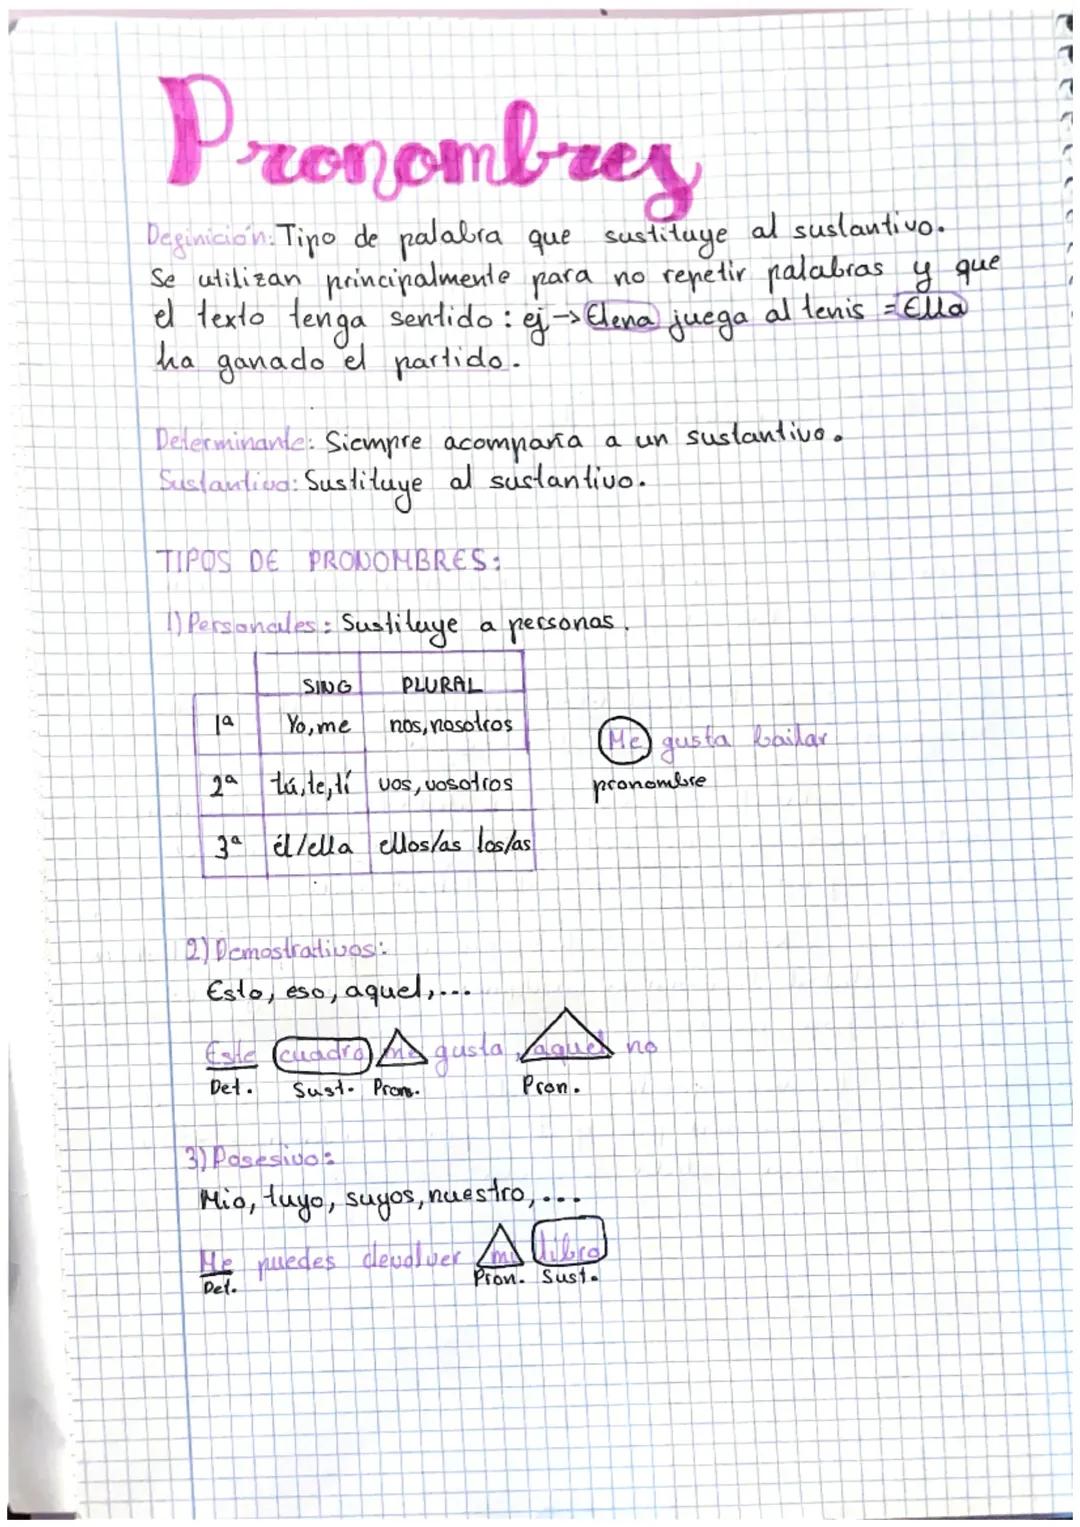 Pronombres
Definición: Tipo de palabra que sustituye al sustantivo.
Se utilizan principalmente para no repetir palabras y que
el texto tenga sentido: ej → Elena juega al tenis = Ella
ha ganado el partido.
Determinante: Siempre acompaña a un sustantivo.
Sustantivo: Sustituye al sustantivo.
TIPOS DE PRONOMBRES:
1) Personales: Sustituye a personas.
SING PLURAL
1ª Yo, me nos, nosotros
2ª tú, te, tí vos, vosotros
3ª él/ella ellos/as los/as
Me gusta bailar
pronombre
2) Demostrativos:
Esto, eso, aquel,...
Este cuadro me gusta, aquel no
Det. Sust. Pron. Pron.
3) Posesivo:
Mio, tuyo, suyos, nuestro,...
Me puedes devolver mi libro
Det. Pron. Sust.